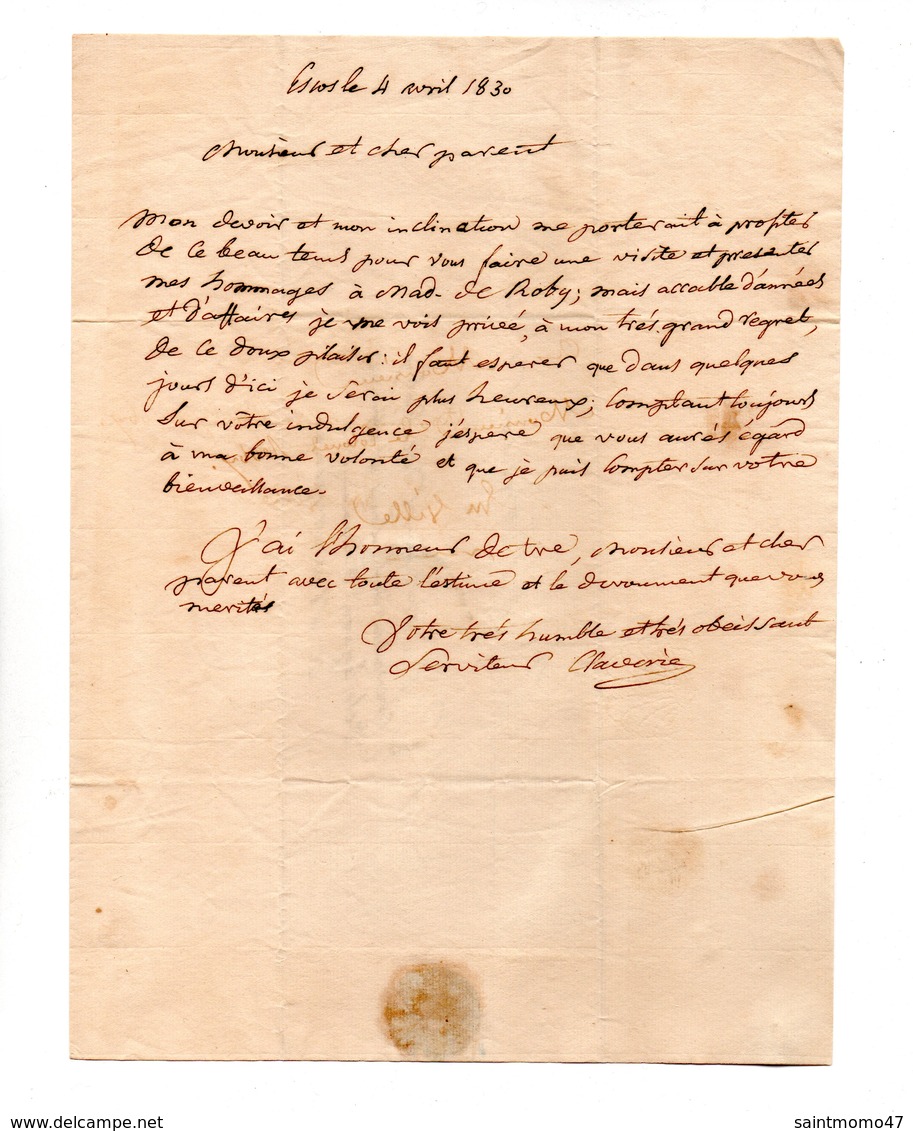 Escos le 4 avril 1830
Monsieur et cher parent
Mon devoir et mon inclination me porterait à profiter
de ce beau tems pour vous faire une visite et presenter
mes hommages à Mad. de Roby; mais accablé d'années
et d'affaires je me vois privéé, à mon trés grand regret,
de ce doux plaisir: il faut esperer que dans quelques
jours d'ici je serai plus heureux; comptant toujours
sur votre indulgence j'espere que vous aurés égard
à ma bonne volonté et que je puis compter sur votre
bienveillance.
J'ai l'honneur detre, Monsieur et cher
parent avec toute l'estime et le devoument que vous
merités
Votre trés humble et trés obeissant
Serviteur Claverie
delcampe.net
saintmomo47